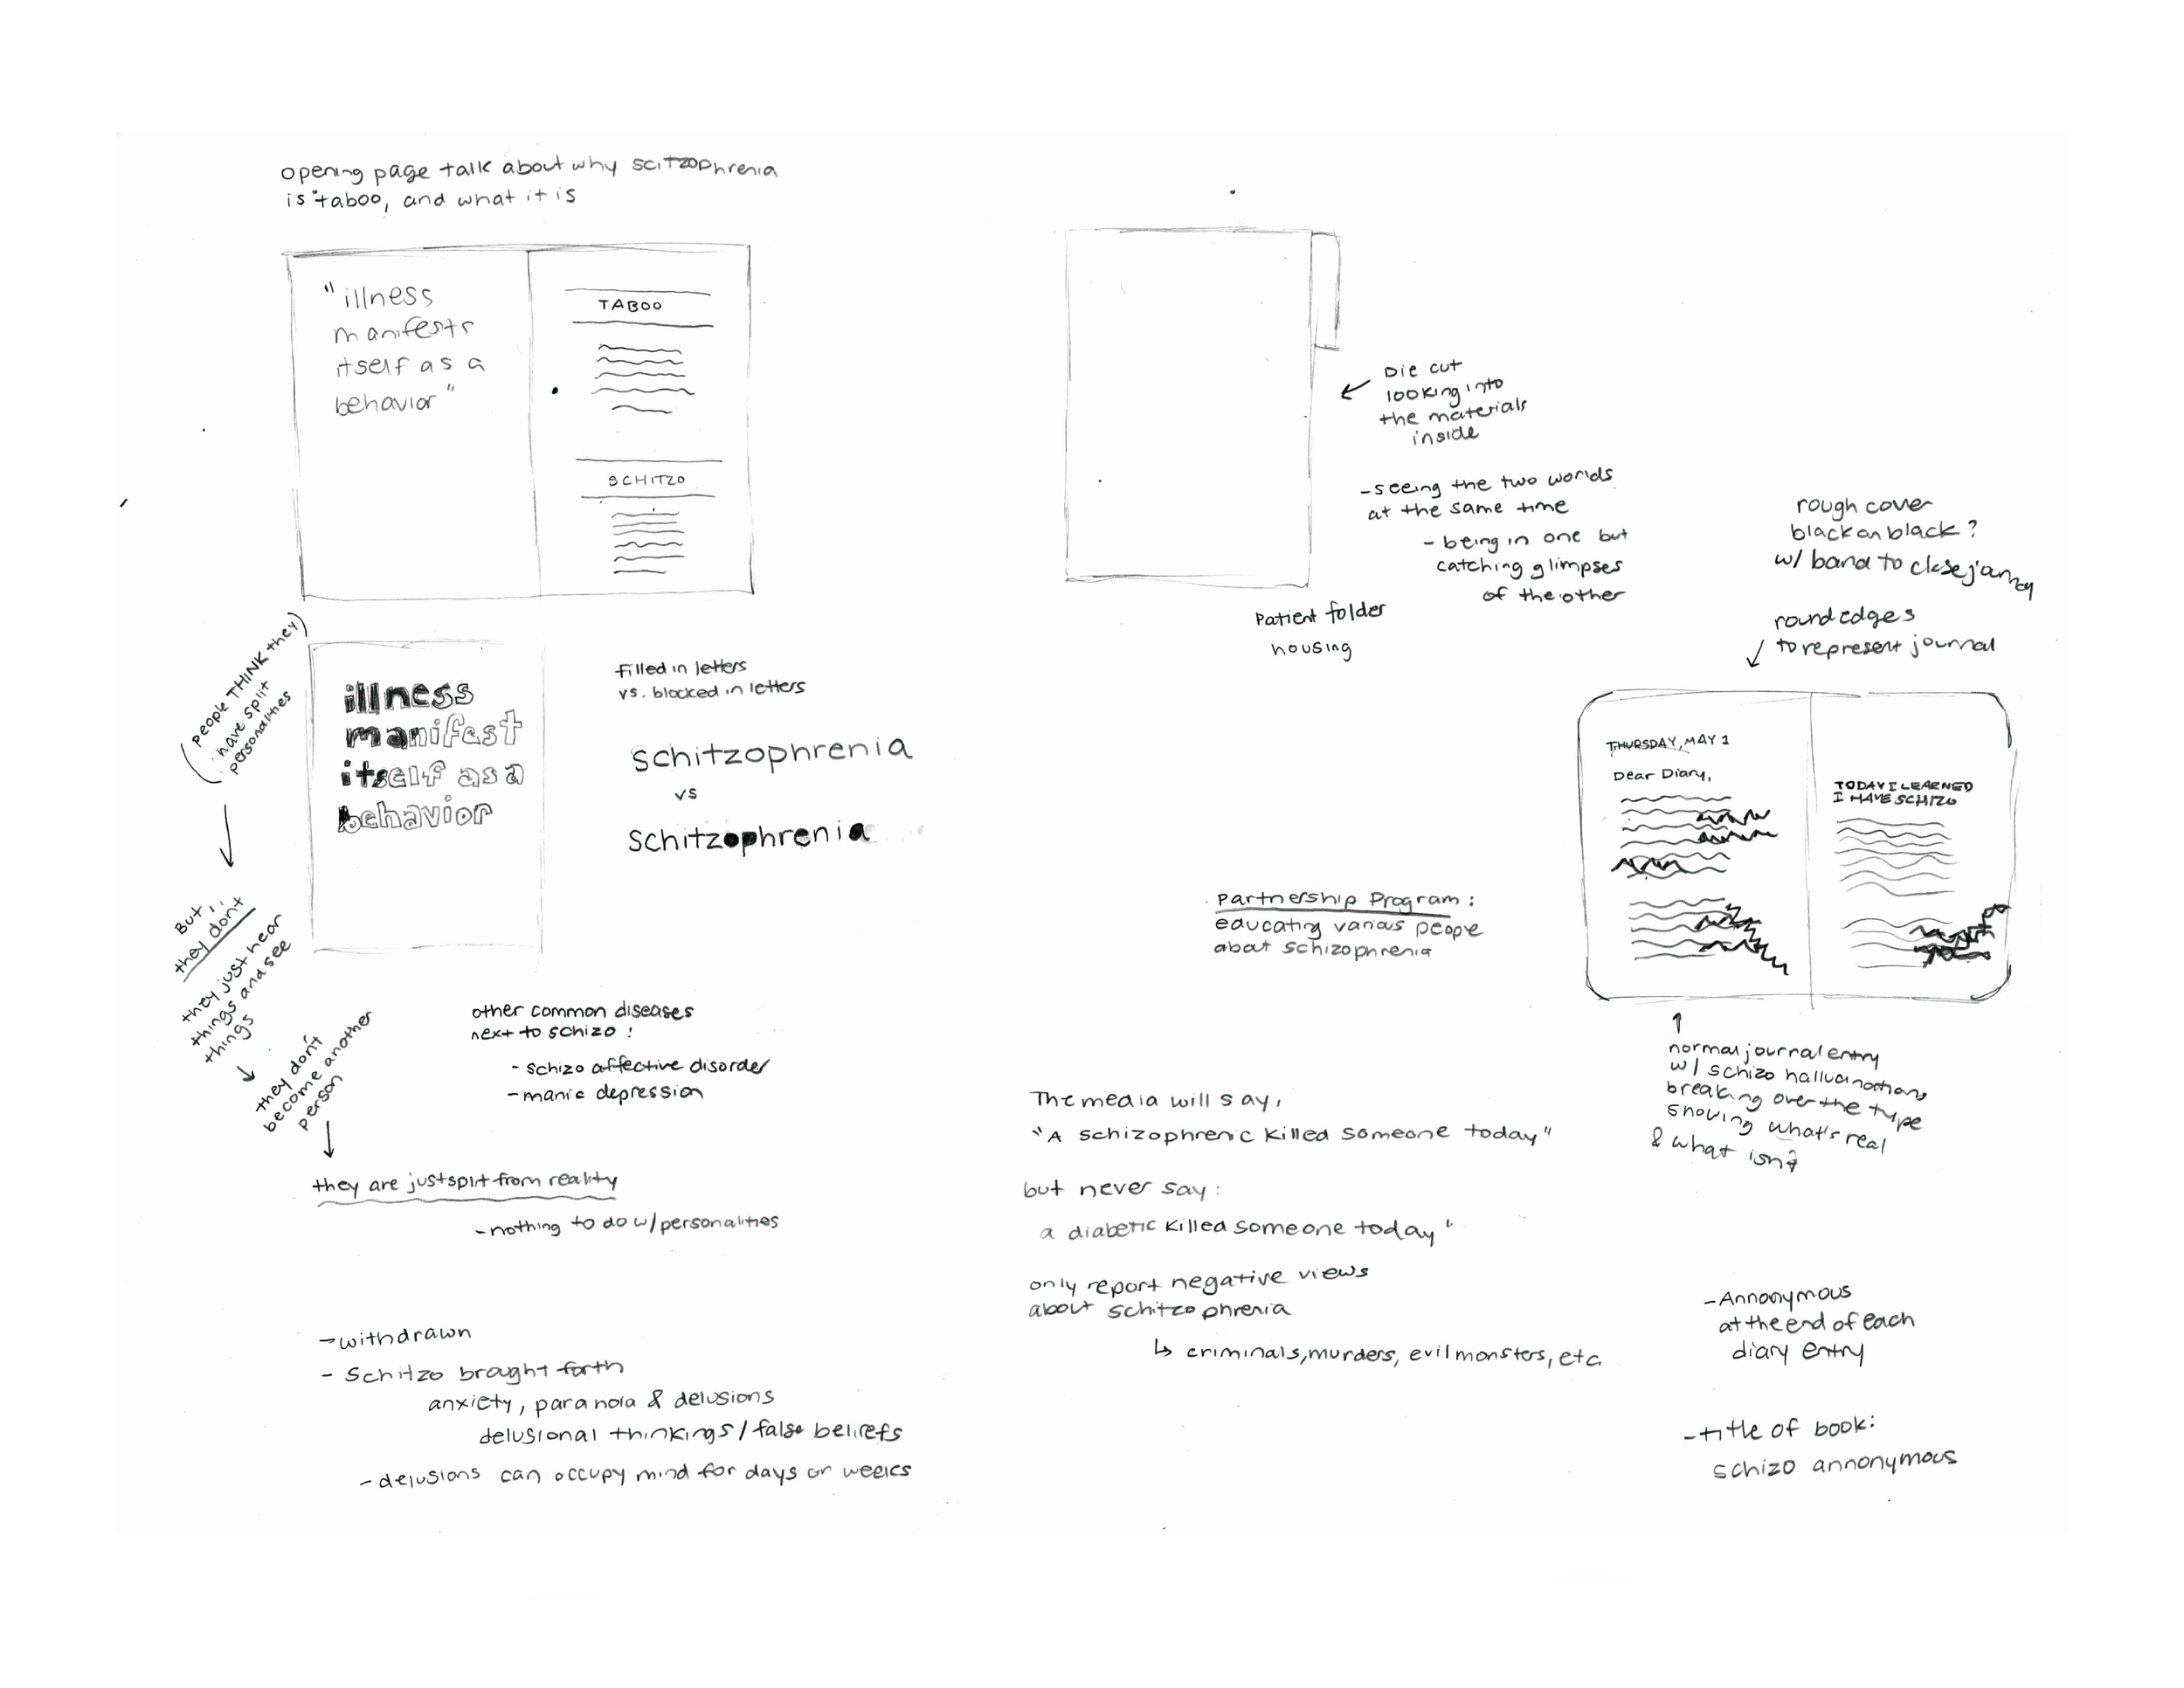 opening page talk about why scitzophrenia
is taboo, and what it is
"illness
manifests
itself as a
behavior"
TABOO
SCHITZO
(people THINK they)
have split
personalities
But,
they don't
they just hear
things and see
things
they don't
become another
person
they are just split from reality
- nothing to do w/ personalities
illness
manifest
itself as a
behavior
filled in letters
vs. blocked in letters
schitzophrenia
vs
schitzophrenia
other common diseases
next to schizo:
- schizo affective disorder
- manic depression
- withdrawn
- Schitzo brought forth
anxiety, paranoia & delusions
delusional thinkings/false beliefs
- delusions can occupy mind for days or weeks
Die cut
looking into
the materials
inside
- seeing the two worlds
at the same time
- being in one but
catching glimpses
of the other
Patient folder
housing
Partnership Program:
educating various people
about schizophrenia
The media will say,
"A schizophrenic killed someone today"
but never say:
a diabetic killed someone today"
only report negative views
about schitzophrenia
↳ criminals, murders, evil monsters, etc.
rough cover
black on black?
w/ band to close
round edges
to represent journal
THURSDAY, MAY 1
Dear Diary,
TODAY I LEARNED
I HAVE SCHIZO
normal journal entry
w/ schizo hallucinations
breaking over the type
showing what's real
& what isn't
- Annonymous
at the end of each
diary entry
- title of book:
schizo annonymous